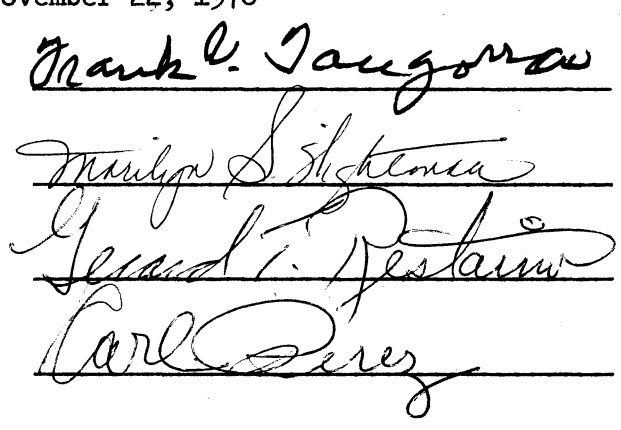 ovember 22, 1978
Frank C. Tangorra
Marilyn S.
Gerard T. Restaino
Carl Perez